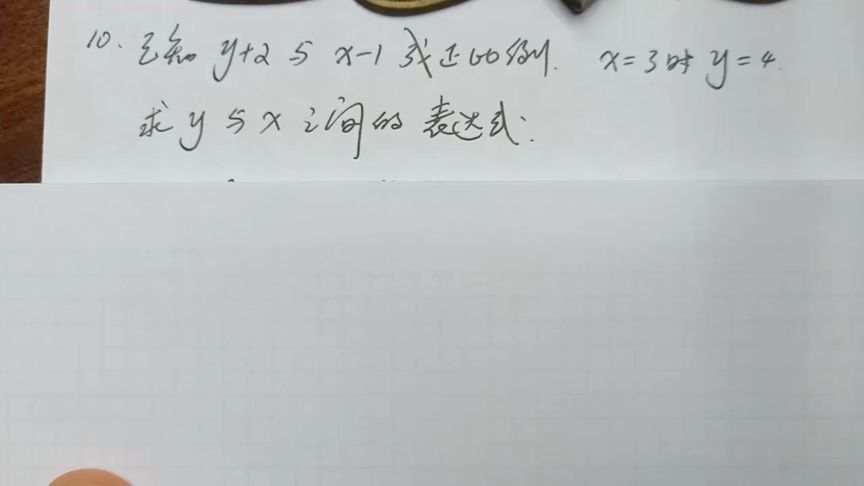 10. 已知 y+2 与 x-1 成正比例. x=3时 y=4.
求 y 与 x 之间的表达式: